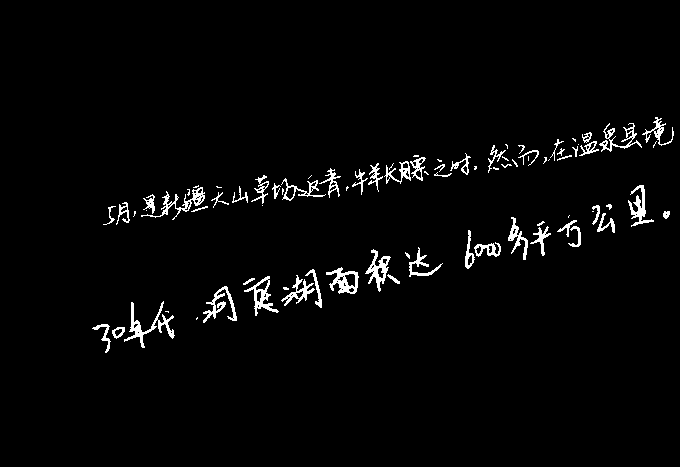 5月,是新疆天山草场返青,牛羊长膘之时。然而,在温泉县境
30年代,洞庭湖面积达6000多平方公里。